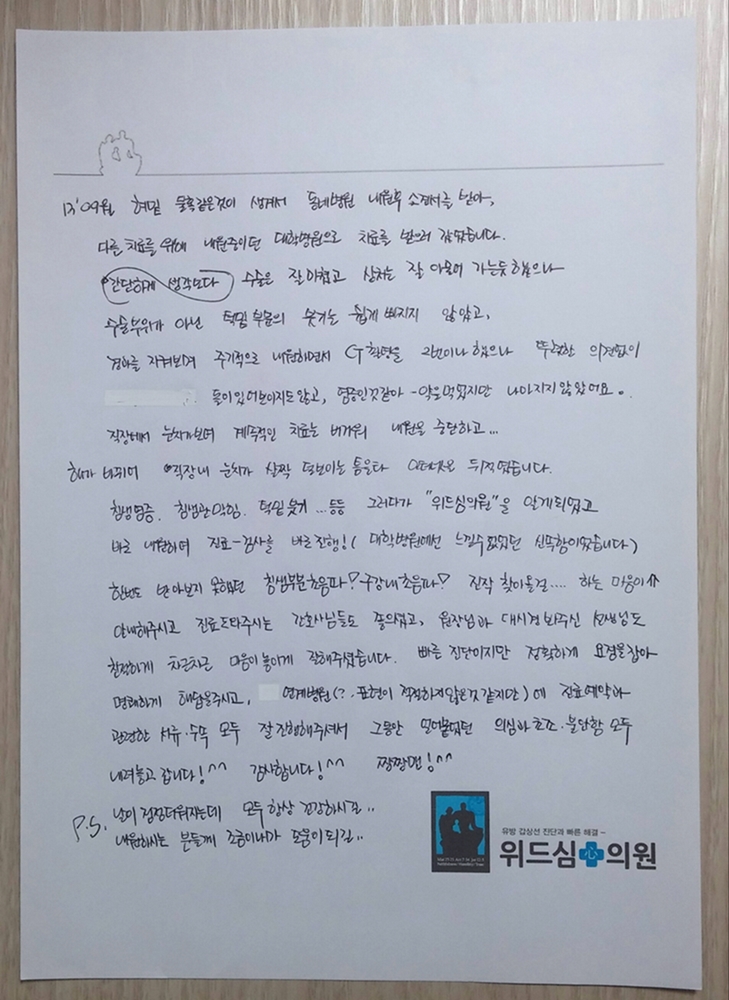 13'09월 혀밑 물혹같은것이 생겨서 동네병원 내원후 소견서를 받아,
다른 치료를 위해 내원중이던 대학병원으로 치료를 받으러 갔었습니다.
간단하게 생각보다 수술은 잘 마쳤고 상처는 잘 아물어 가는듯 했으나
수술부위가 아닌 턱밑 부분의 붓기는 쉽게 빠지지 않았고,
경과를 지켜보며 주기적으로 내원하면서 CT촬영을 2번이나 했으나 뚜렷한 의견없이
돌이있어보이지도않고, 염증인것같아 - 약을먹었지만 나아지지않았어요.
직장에서 눈치가보여 계속적인 치료는 버거워 내원을 중단하고...
해가 바뀌어 직장내 눈치가 살짝 덜보이는 틈을타 인터넷을 뒤적였습니다.
침샘염증, 침샘관막힘, 턱밑붓기...등등 그러다가 "위드심의원"을 알게되었고
바로 내원하여 진료-검사를 바로진행! ( 대학병원에선 느낄수없었던 신속함이었습니다)
한번도 받아보지 못했던 침샘부분초음파? 구강내초음파? 진작 찾아올걸.... 하는 마음이
안내해주시고 진료도와주시는 간호사님들도 좋으셨고, 원장님과 대시경봐주신 선생님도
친절하게 차근차근 마음이놓이게 잘해주셨습니다. 빠른 진단이지만 정확하게 요점을잡아
명쾌하게 해답을주시고, 연계병원(?·표현이 적절하지않은것같지만)에 진료예약과
관련한 서류·수속 모두 잘진행해주셔서 그동안 의심과 초조·불안함 모두
내려놓고갑니다!^^ 감사합니다!^^ 짱짱맨!^^
P.S. 날이 점점더워지는데 모두항상 건강하시길..
내원하시는 분들께 조금이나마 도움이되길..
유방 갑상선 진단과 빠른 해결~
위드심心의원